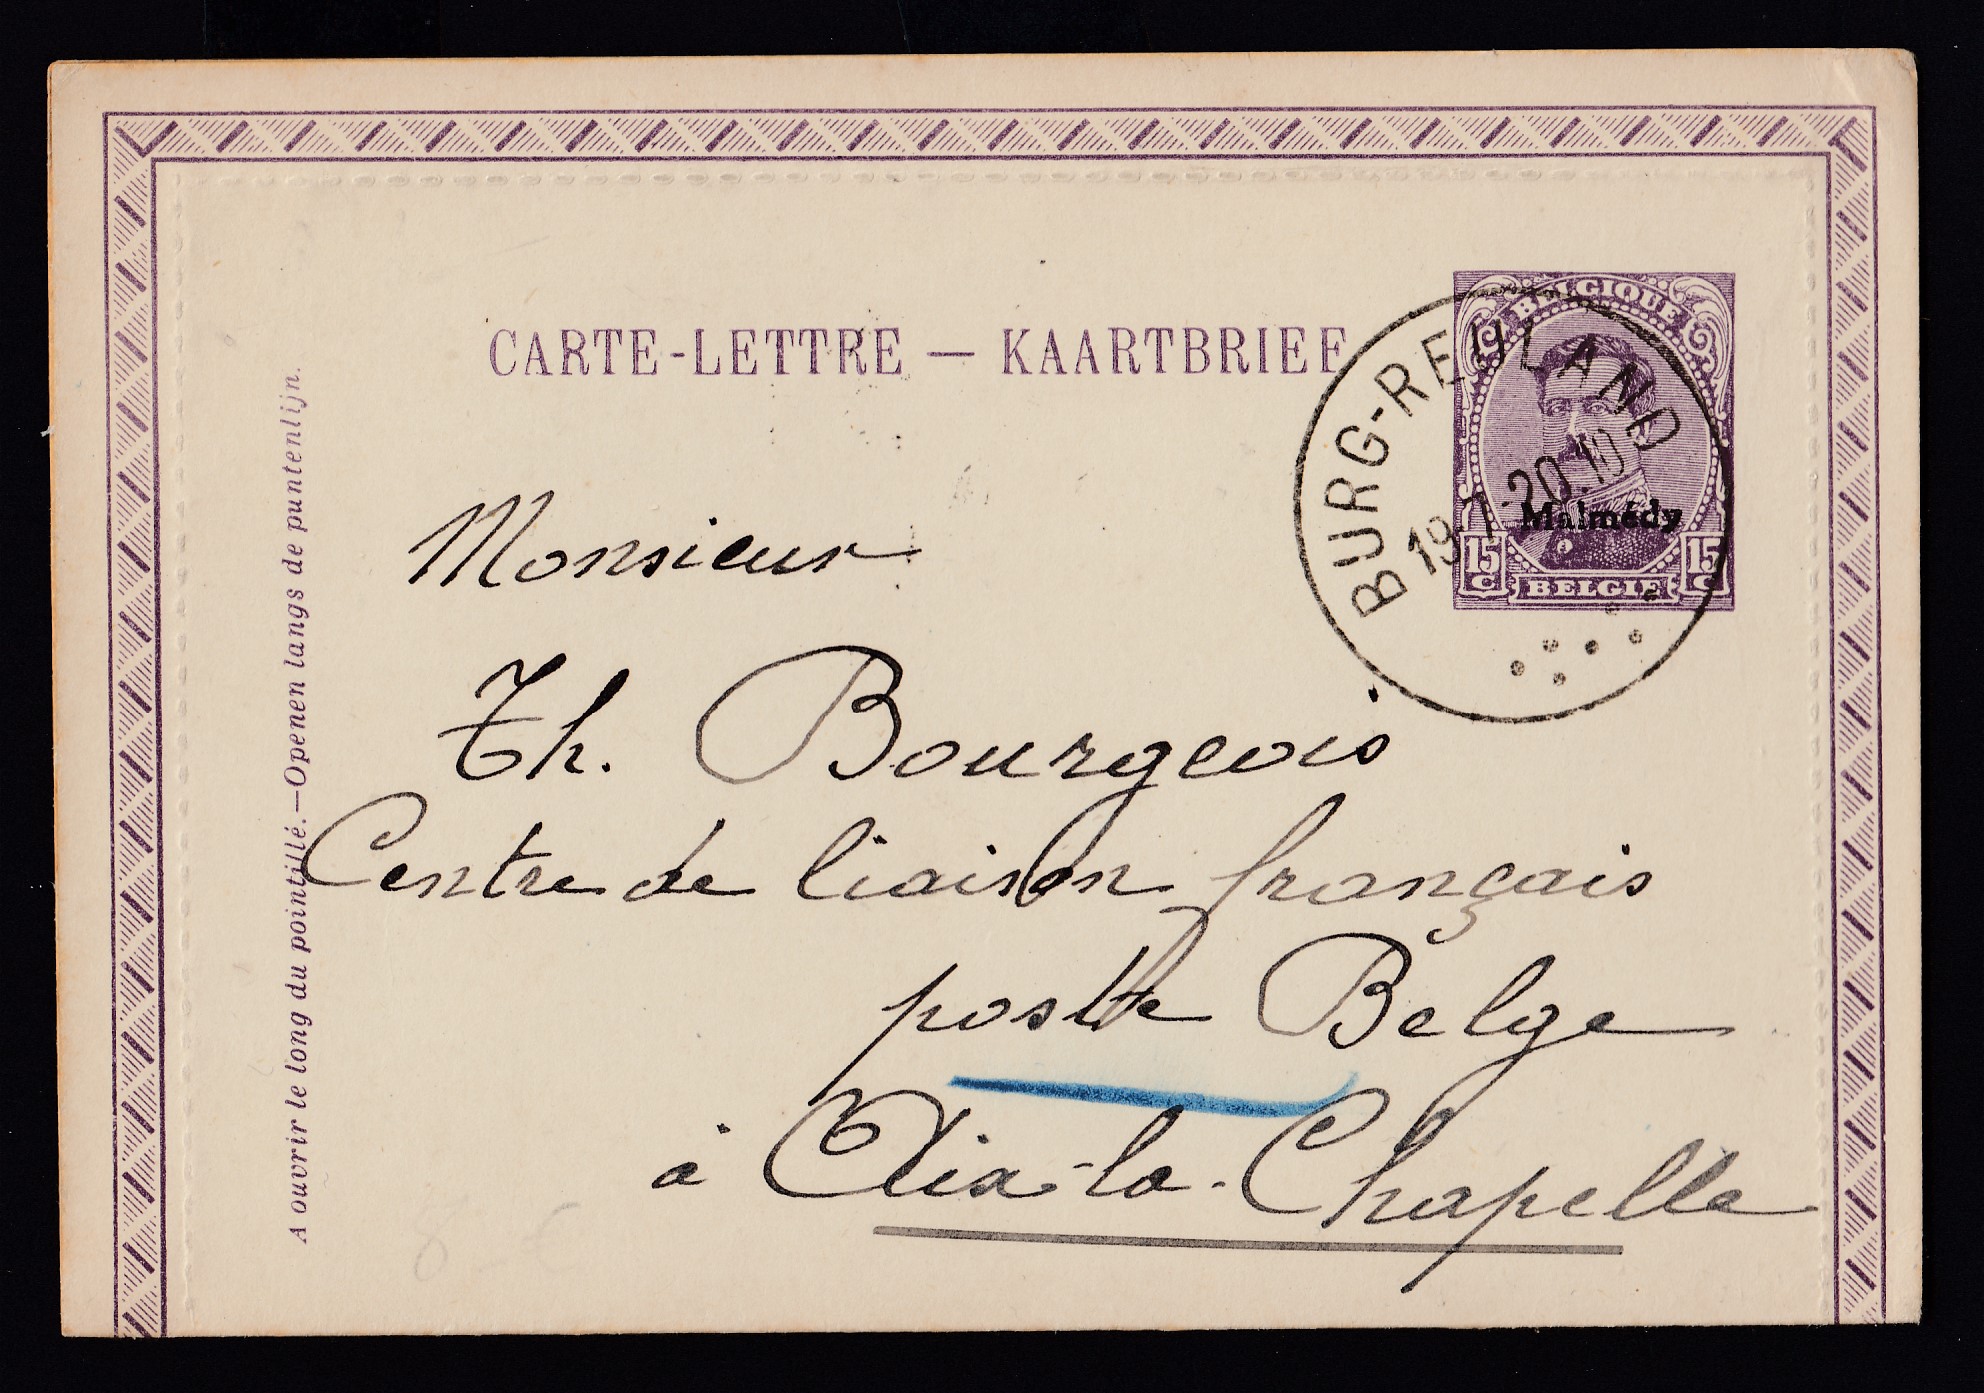 CARTE-LETTRE — KAARTBRIEF
BELGIQUE
Malmédy
15 C 15 C
BELGIË
BURG-REULAND
19-7-20 10
Monsieur
Th. Bourgeois
Centre de liaison français
poste Belge
à Aix-la-Chapelle
A ouvrir le long du pointillé.—Openen langs de puntenlijn.